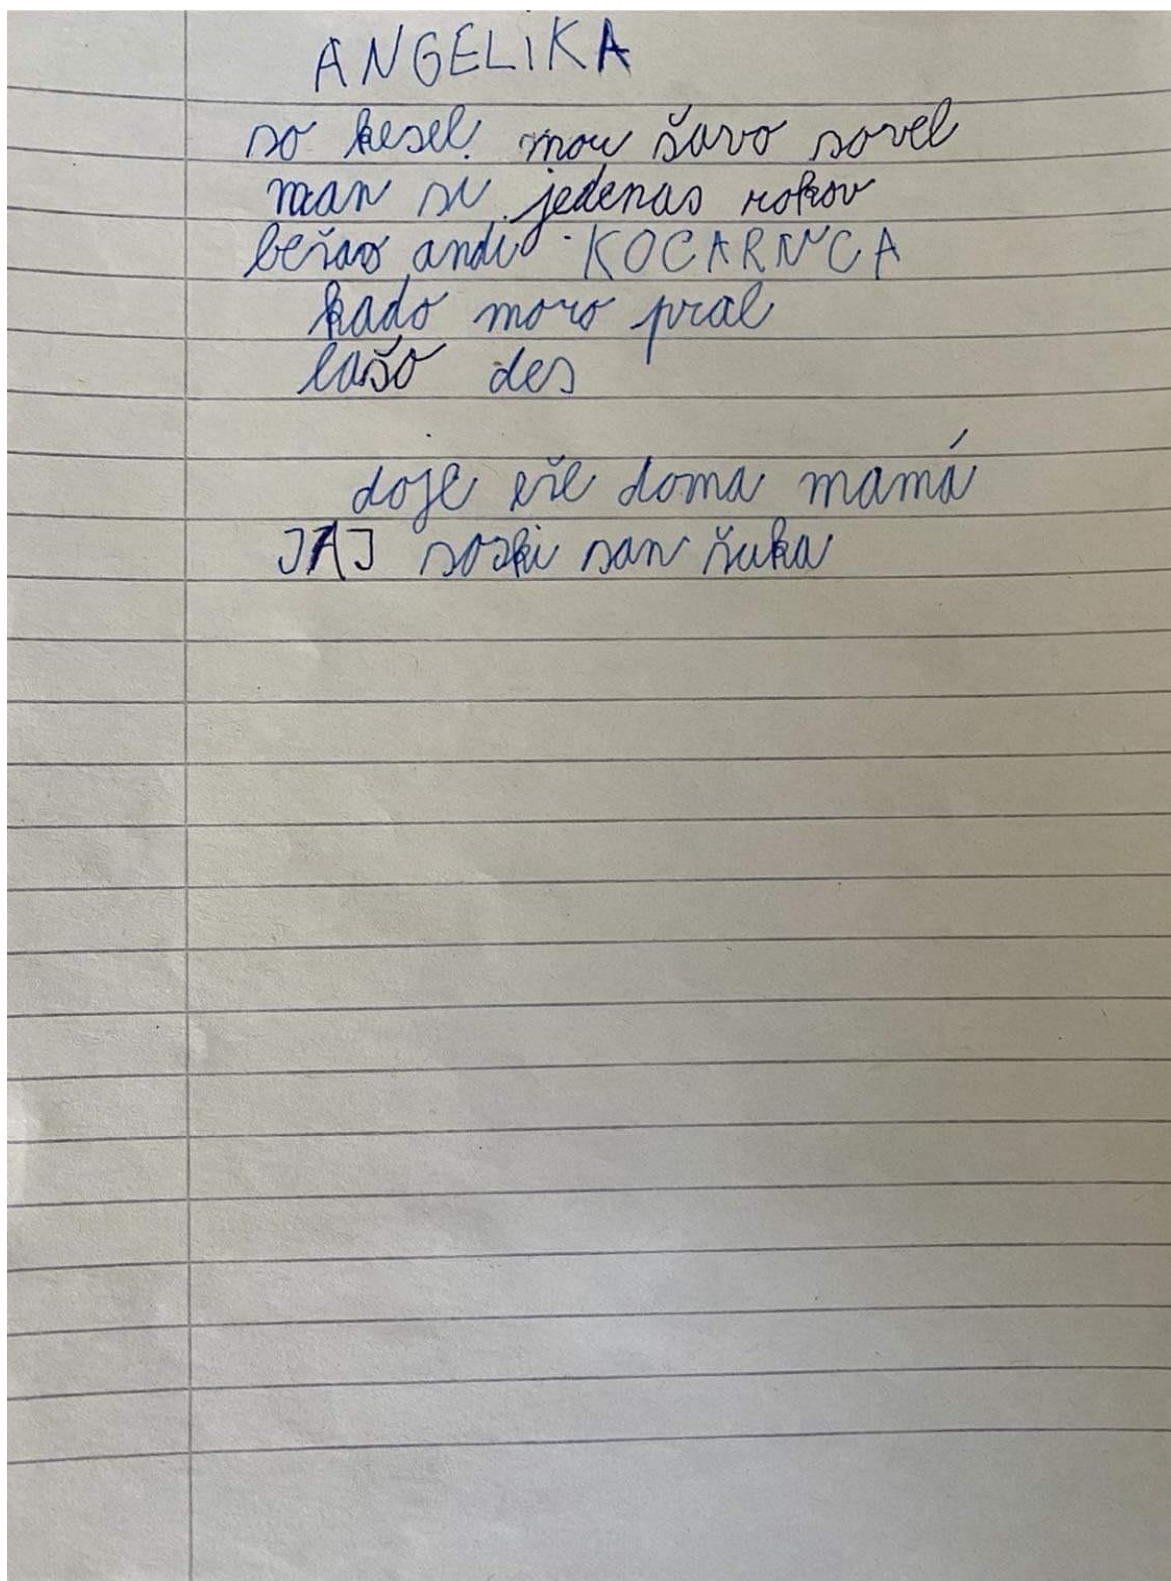 ANGELIKA
so kesel. mou šavo sovel
man si jedenas rokov
bešao andi KOCARNCA
kado moro pral
lašo des
doje eře doma mamá
JAJ soski san šuka